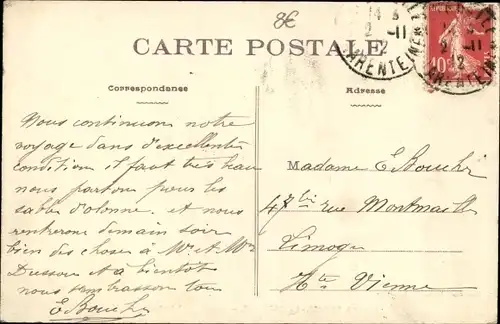 8€
CARTE POSTALE
Correspondance
Nous continuons notre
voyage dans d'excellentes
conditions il faut très beau
nous partons pour les
sable d'olonne. et nous
rentrerons demain soir
bien des choses à Mr. et Mme
et à bientôt
nous embrassons tous
E Bouché
Adresse
Madame E Bouché
47 bis rue Montmailler
Limoges
Hte Vienne
10
2 - 11
12